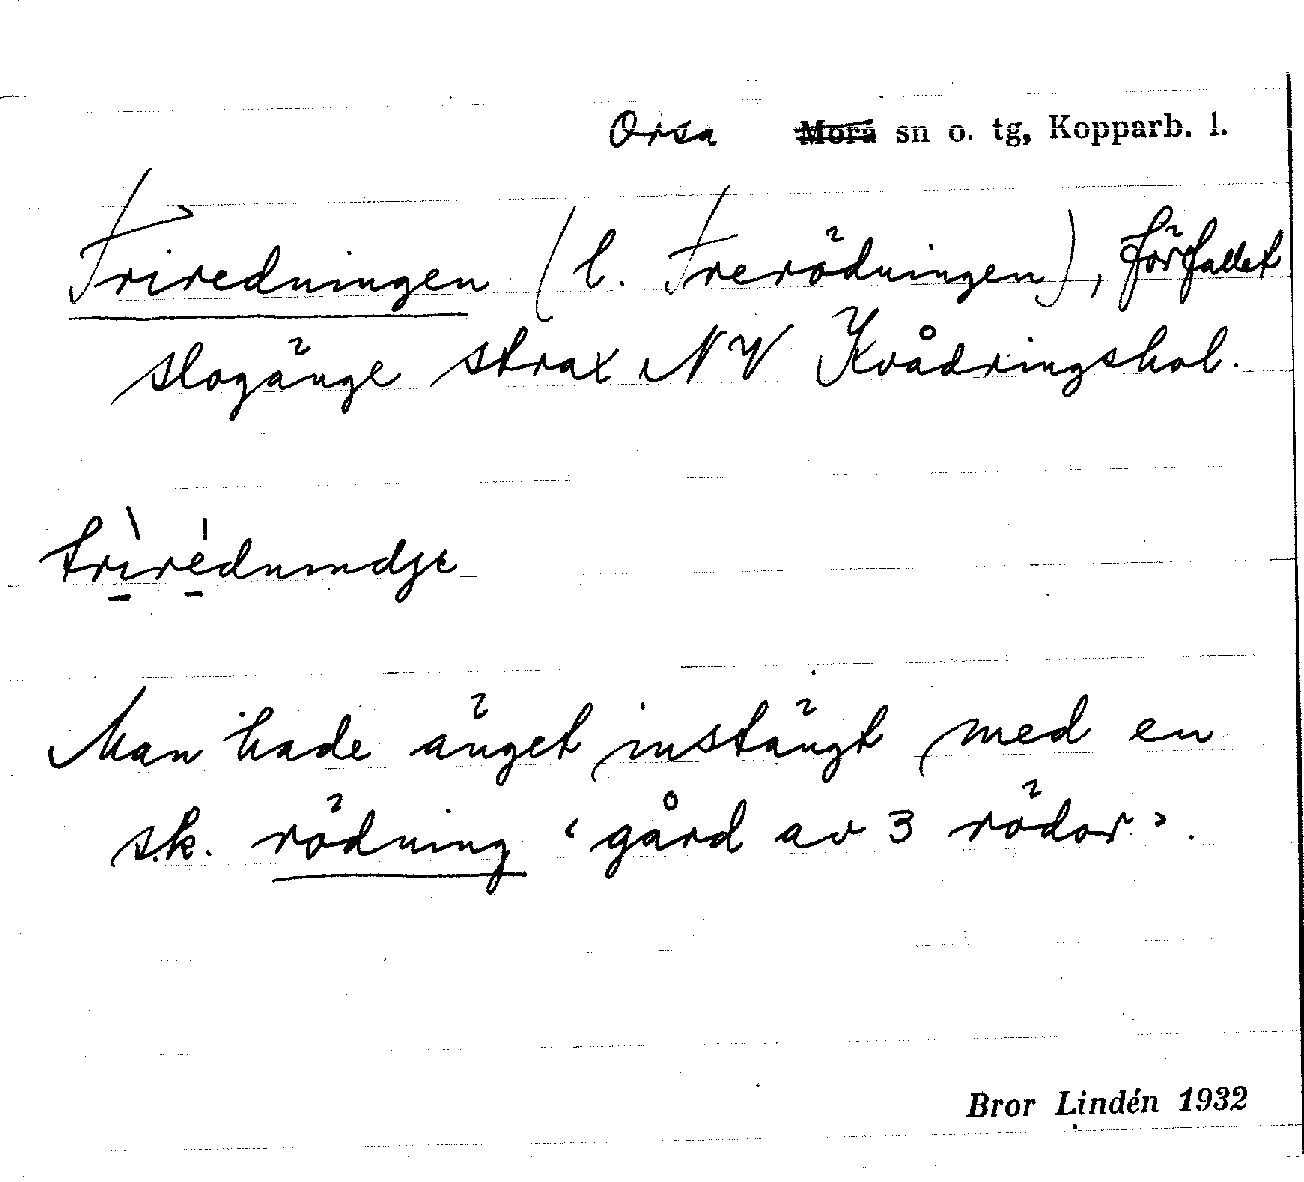 Orsa Mora sn o. tg, Kopparb. l.
Triredningen (l. Trerödningen), förfallet
slogänge strax NV Kvådringshol.
trìrédnindje
Man hade änget instängt med en
s.k. rödning ‘gård av 3 rödor’.
Bror Lindén 1932